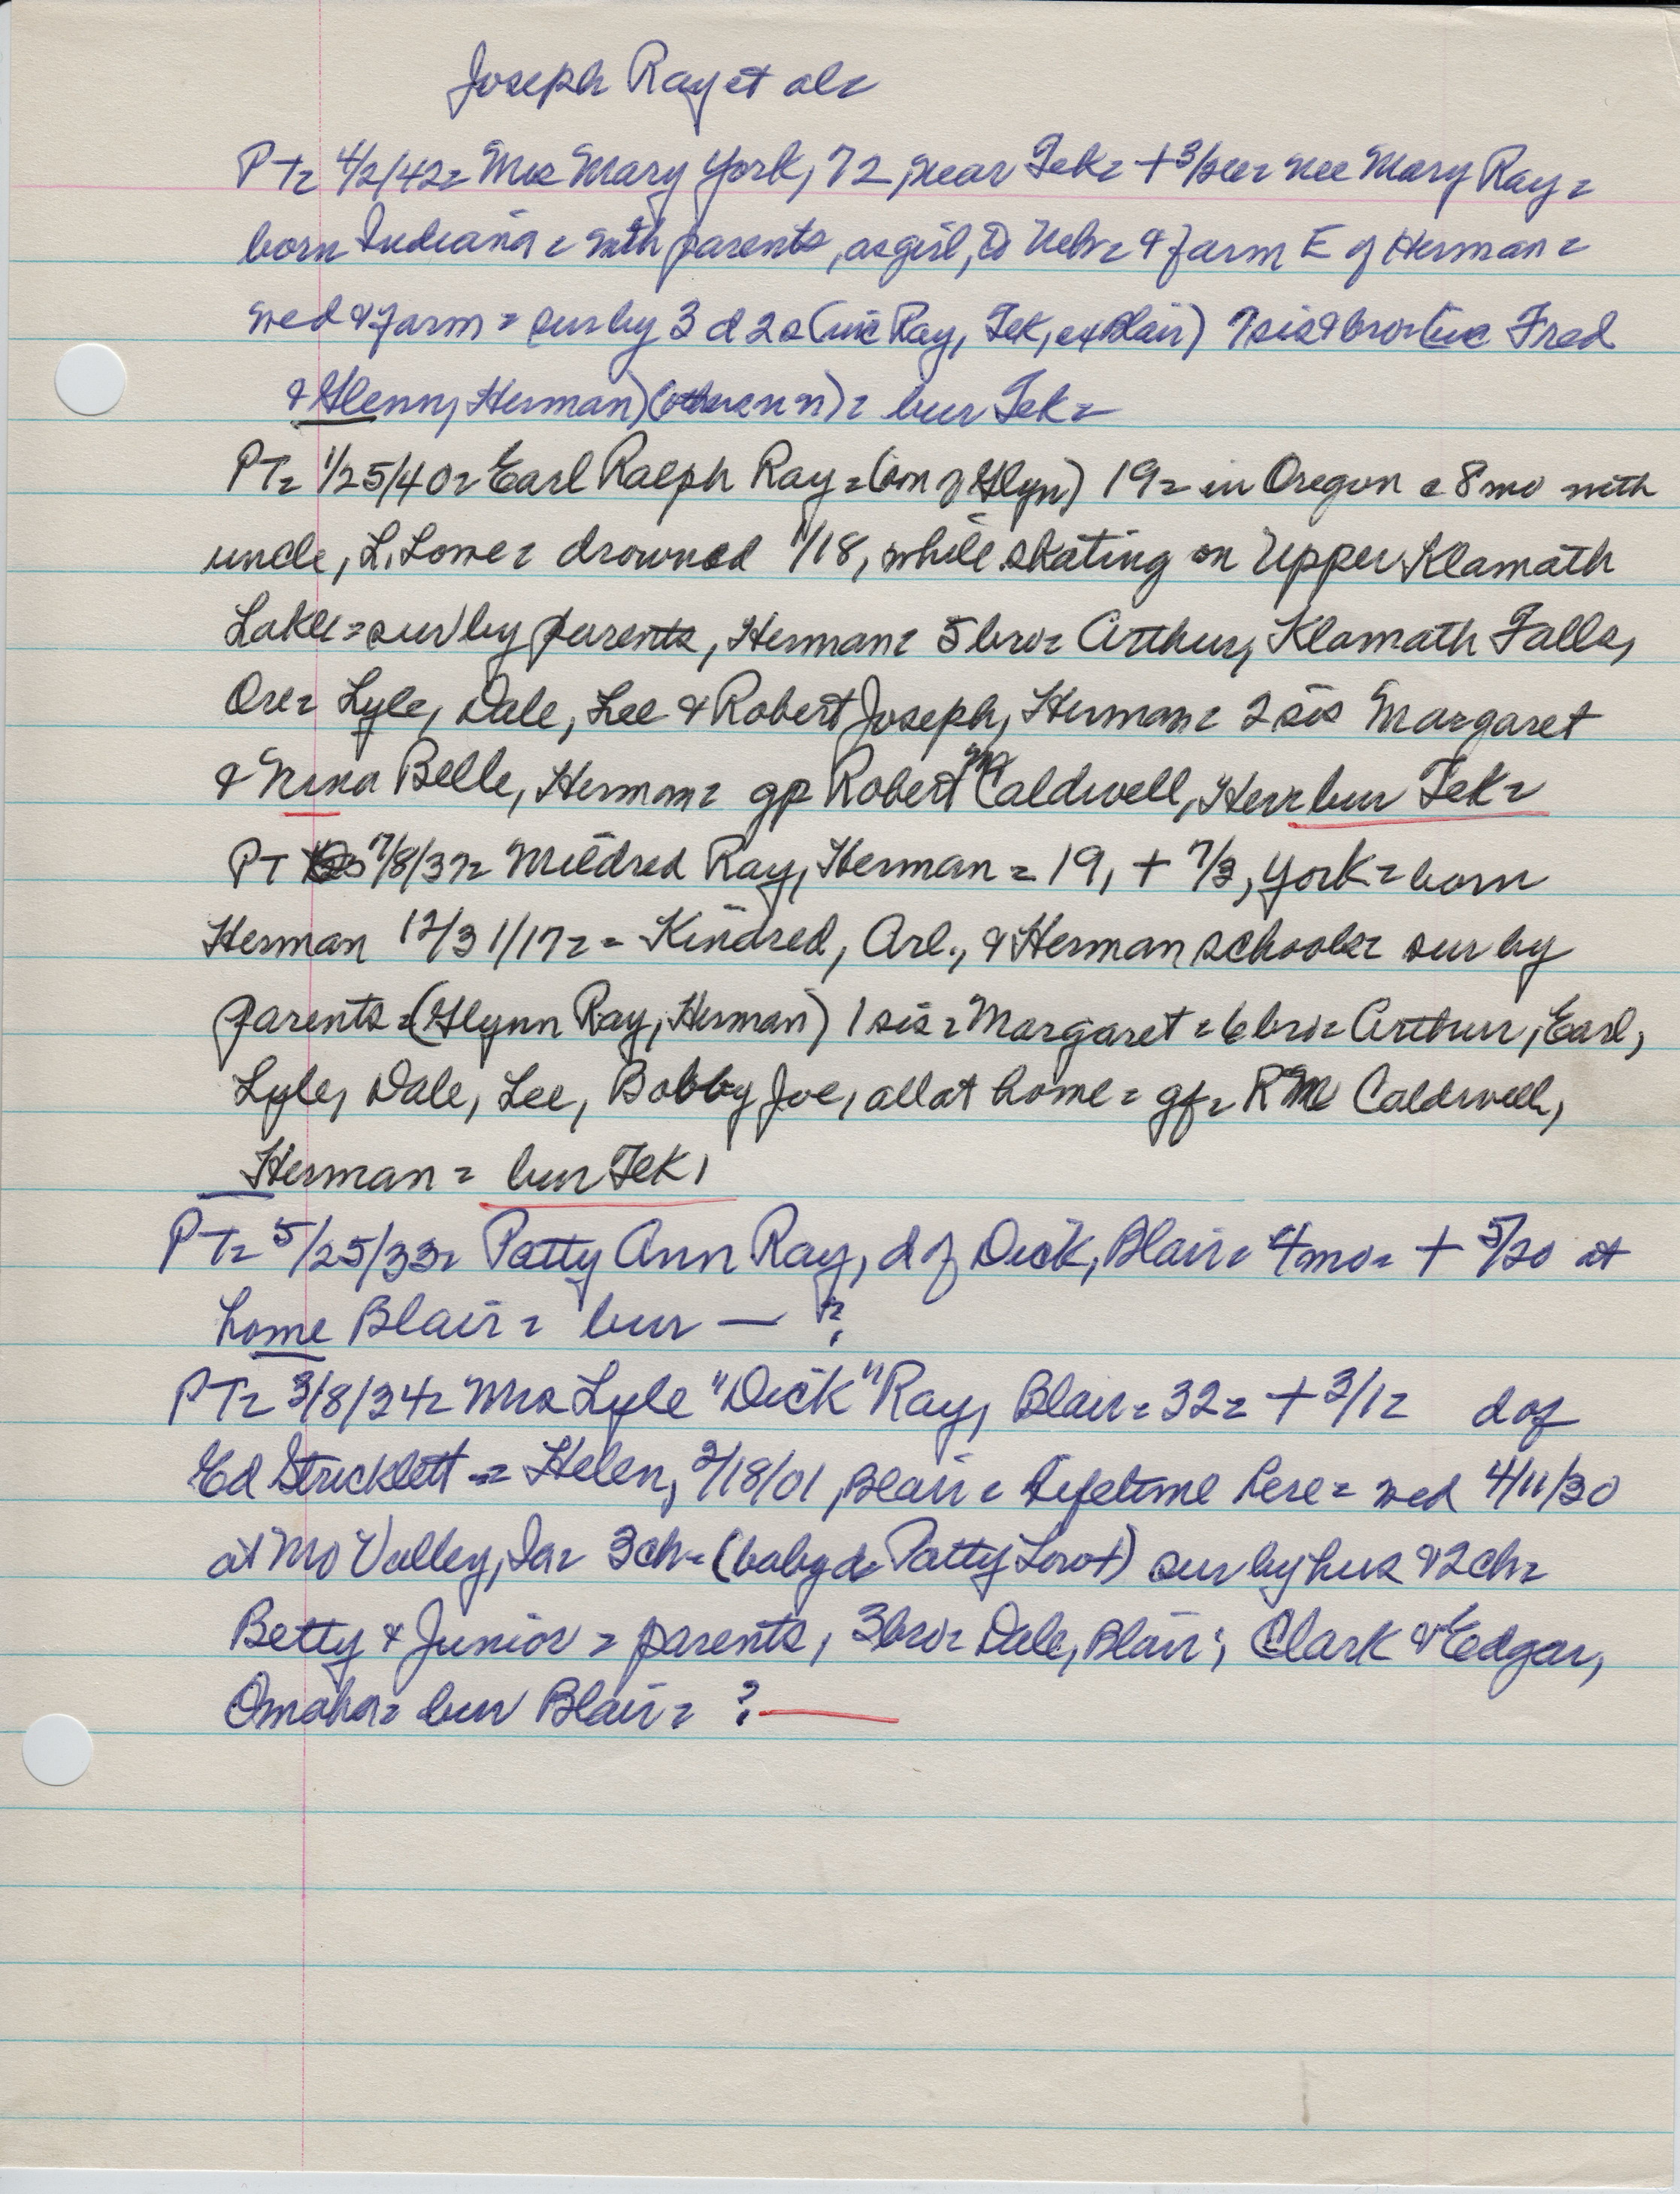 Joseph Ray et al=
PT= 4/2/42= Mrs Mary York, 72, near Tek= + 3/ = nee Mary Ray=
born Indiana= with parents, as girl, to Nebr= & farm E of Herman=
wed & farm= sur by 3 d 2 s (inc Ray, Tek, ex Blair) 7 sis & bro= (inc Fred
& Glenn, Herman) (others n n)= bur Tek=
PT= 1/25/40= Earl Ralph Ray= (son of Glyn) 19= in Oregon c 8 mo with
uncle, L. Lowe= drowned 1/18, while skating on Upper Klamath
Lake= sur by parents, Herman= 5 bro= Arthur, Klamath Falls,
Ore= Lyle, Dale, Lee & Robert Joseph, Herman= 2 sis Margaret
& Nina Belle, Herman= gp Robert M Caldwell, Her= bur Tek=
PT 7/8/37= Mildred Ray, Herman= 19, + 7/3, York= born
Herman 12/31/17= = Kindred, Arl., & Herman schools= sur by
parents= (Glynn Ray, Herman) 1 sis= Margaret= 6 bro= Arthur, Earl,
Lyle, Dale, Lee, Bobby Joe, all at home= gf= R M Caldwell,
Herman= bur Tek,
PT= 5/25/33= Patty Ann Ray, d of Dick, Blair= 4 mo= + 5/20 at
home Blair= bur — ?
PT= 3/8/34= Mrs Lyle "Dick" Ray, Blair= 32= + 3/1= d of
Ed Stricklett -= Helen, 2/18/01, Blair= lifetime here= wed 4/11/30
at Mo Valley, Ia= 3 ch= (baby d= Patty ) sur by hus & 2 ch=
Betty & Junior= parents, 3 bro= Dale, Blair; Clark & Edgar,
Omaha= bur Blair= ? —